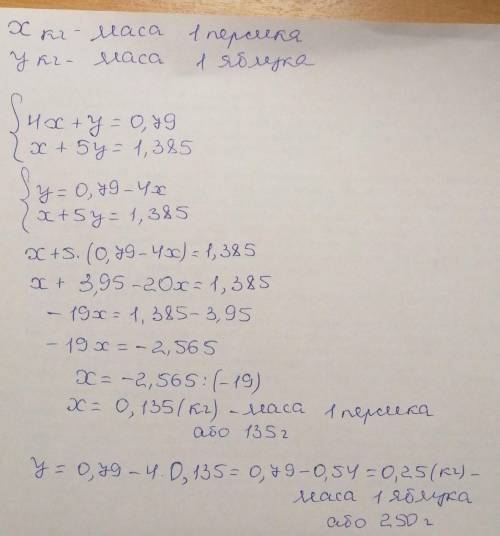 x кг - маса 1 персика
y кг - маса 1 яблука
4x + y = 0,79
x + 5y = 1,385
y = 0,79 - 4x
x + 5y = 1,385
x + 5·(0,79 - 4x) = 1,385
x + 3,95 - 20x = 1,385
- 19x = 1,385 - 3,95
- 19x = - 2,565
x = - 2,565 : (- 19)
x = 0,135 (кг) - маса 1 персика
або 135 г
y = 0,79 - 4·0,135 = 0,79 - 0,54 = 0,25 (кг) -
маса 1 яблука
або 250 г